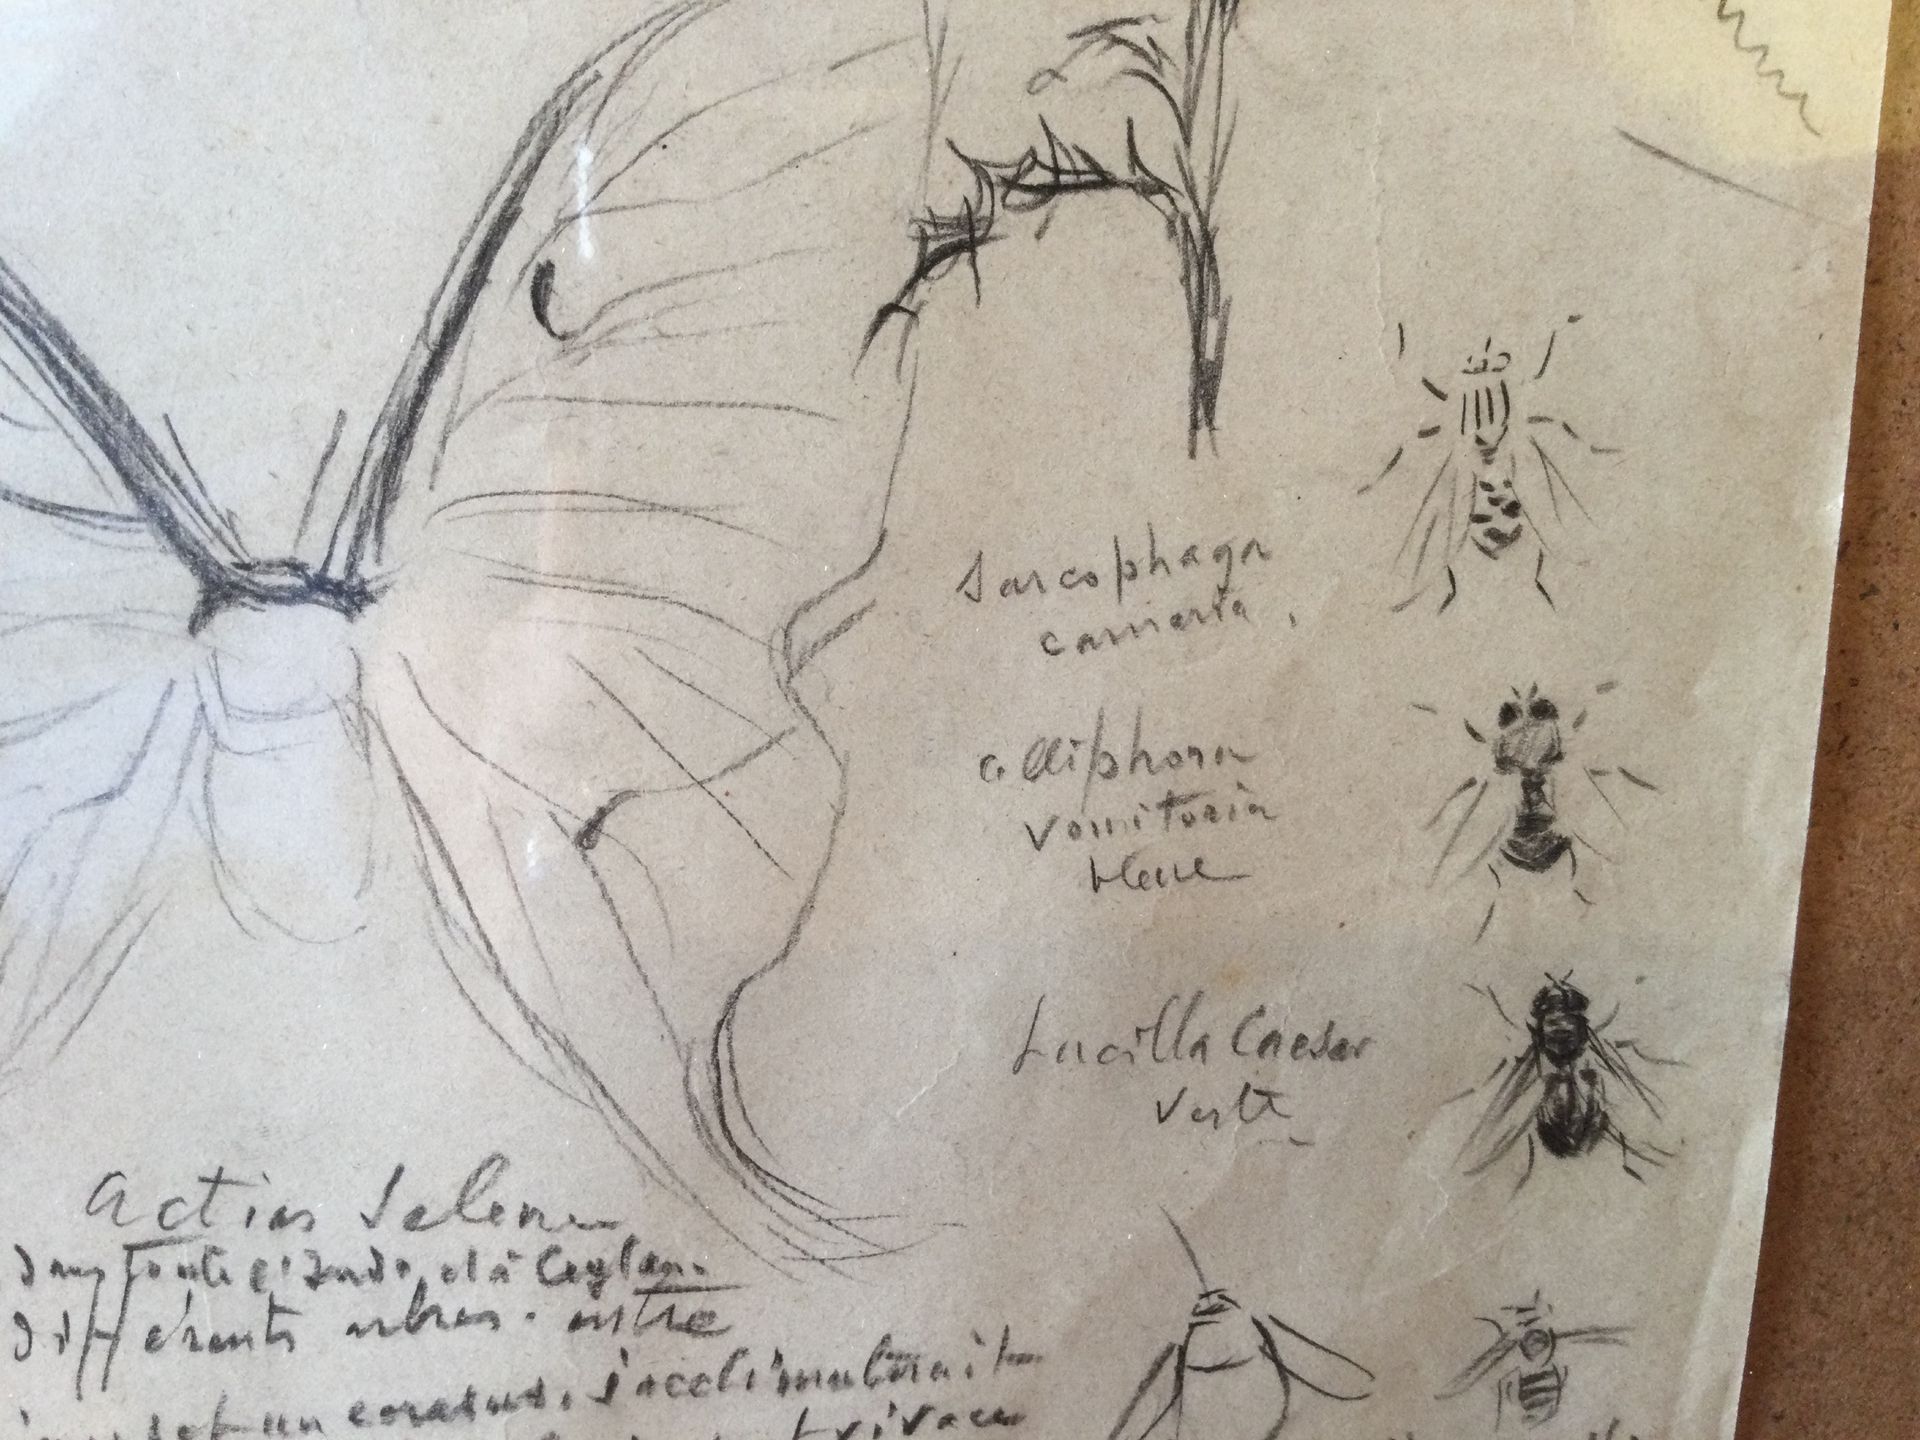 Sarcophaga
carnaria.
Calliphora
vomitoria
bleue
Lucilla Caesar
verte
Actias Selene
toute l'Inde, et à Ceylan.
différents arbres. entre
un cerasus, s'acclimaterait
vivace